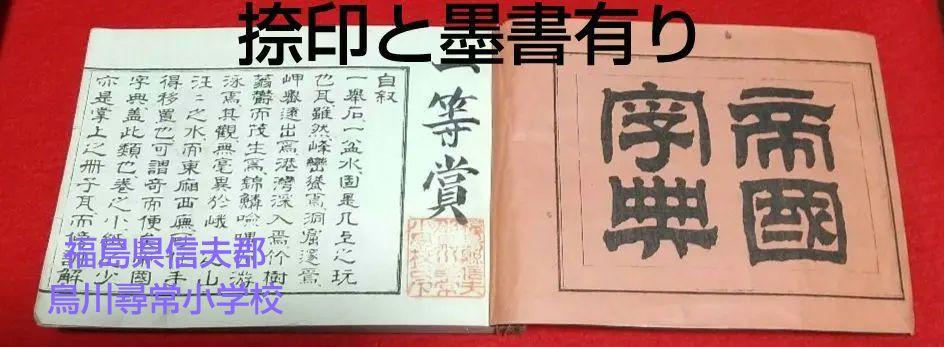 捺印と墨書有り
帝國
字典
等賞
自叙
一拳石一盆水固是几上之玩
也耳雖然峰巒焉洞窟邃焉
岬遠出焉港灣深入焉竹樹
蓊欝而茂生焉錦鱗喩游
泳焉其觀無毫異於峨山
汪〻之水而東廂西廡手
得移置也可謂奇而便國
字典蓋此類也卷之小少
亦是掌上之冊子耳而解
福島県信夫郡
鳥川尋常小学校